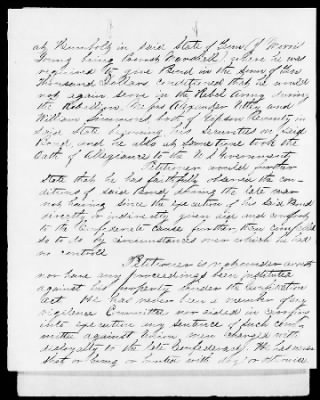 at Humboldt in said State of Tenn (J. Moore
Young being Provost Marshall) where he was
required to give Bond in the sum of Ten
Thousand Dollars conditioned that he would
not again serve in the Rebel Army during
the Rebellion. Messrs Alexander and
William both of Gibson County in
said State becoming his securities on said
Bond, and he also at same time took the
Oath of Allegiance to the U S Government
Petitioner would further
state that he has faithfully observed the con-
ditions of said Bond, during the late war
not having since the execution of his said Bond
directly or indirectly given aid and comfort
to the Confederate cause further than compelled
so to do by circumstances over which he had
no control
Petitioner is not under arrest
nor have any proceedings been instituted
against his property under the Confiscation
Act. He has never been a member of any
vigilence Committee nor aided in carrying
into execution any sentence of such com-
mittee against Union men charged with
disloyalty to the late Confederacy. He has never
shot or hung or hunted with dogs or otherwise